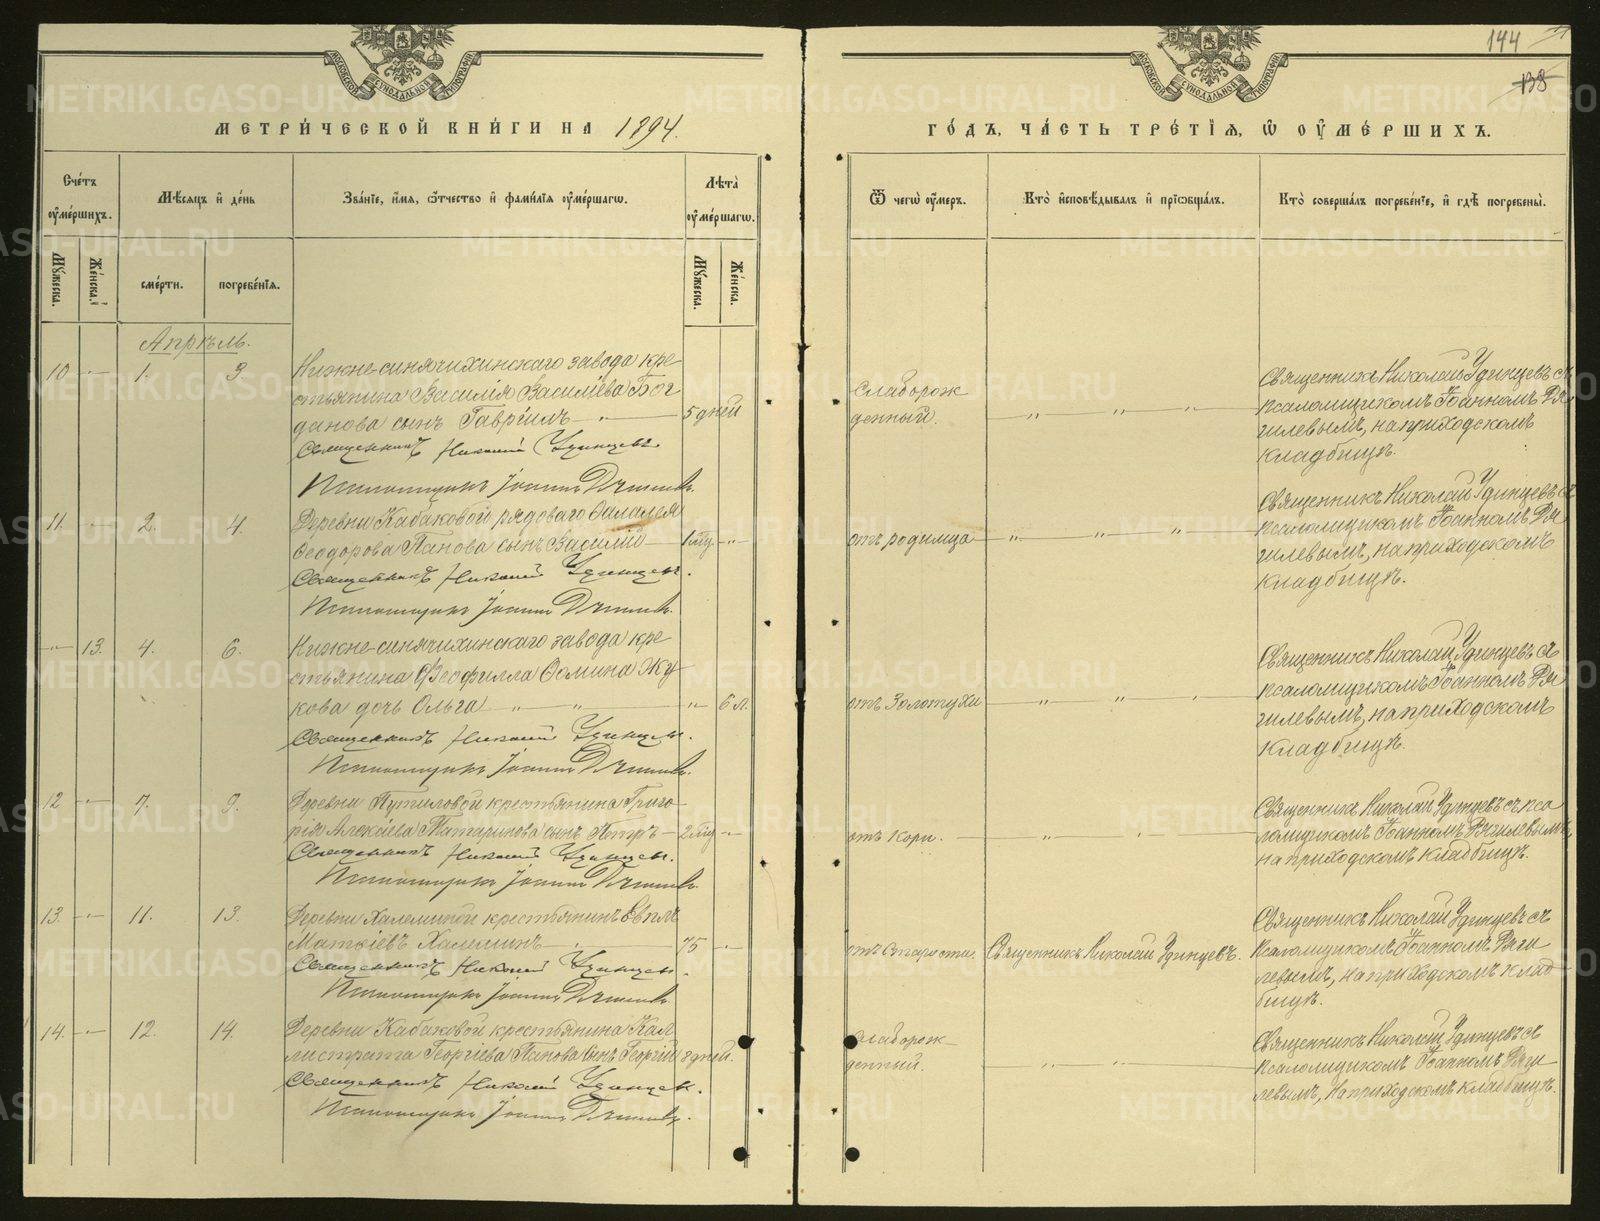 144
138
МОСКОВСКОЙ СѴНОДАЛЬНОЙ ТИПОГРАФІИ
МОСКОВСКОЙ СѴНОДАЛЬНОЙ ТИПОГРАФІИ
МЕТРИ́ЧЕСКОЙ КНИ́ГИ НА 1894.
ГО́ДЪ, ЧА́СТЬ ТРЕ́ТІѦ, Ѡ ОУ҆МЕ́РШИХЪ.
Сче́тъ оу҆ме́ршихъ.
Мѣ́сѧцъ и҆ де́нь
Зва́нїе, и҆́мѧ, ѻ҆́тчество и҆ фами́лїѧ оу҆ме́ршагѡ.
Лѣ́та оу҆ме́ршагѡ.
Ѿ чегѡ̀ оу҆́меръ.
Кто̀ и҆сповѣ́дывалъ и҆ прїѡбща́лъ.
Кто̀ соверша́лъ погребе́нїе, и҆ гдѣ̀ погребены̀.
Мꙋ́жеска.
Же́нска.
сме́рти.
погребе́нїѧ.
Мꙋ́жеска.
Же́нска.
Апрѣль.
10 - " - 1. 3
Нижне-синячихинскаго завода кре-
стьянина Василія Васильева Бог
данова сынъ Гавріилъ - " - 5 дней
Священникъ Николай Удинцевъ
Псаломщикъ Іоаннъ
слаборож
денный. " " "
Священникъ Николай Удинцевъ съ
псаломщикомъ Іоанномъ Ря
гилевымъ, на приходскомъ
кладбищѣ.
11. - " - 2. 4.
Деревни Кабаковой рядоваго Фалалея
Феодорова Панова сынъ Василій - 1 - " -
Священникъ Николай Удинцевъ.
Псаломщикъ Іоаннъ
отъ родимца - " " "
Священникъ Николай Удинцевъ съ
псаломщикомъ Іоанномъ Ря
гилевымъ, на приходскомъ
кладбищѣ.
- " - 13. 4. 6.
Нижне-синячихинскаго завода кре-
стьянина Феофилла Фомина Жу
кова дочь Ольга - " - " - " - 6 л.
Священникъ Николай Удинцевъ.
Псаломщикъ Іоаннъ
отъ Золотухи - " " "
Священникъ Николай Удинцевъ съ
псаломщикомъ Іоанномъ Ря
гилевымъ, на приходскомъ
кладбищѣ.
12 - " - 7. 9.
Деревни Путиловой крестьянина Григо-
рія Алексіева Татаринова сынъ Петръ - 2 - " -
Священникъ Николай Удинцевъ.
Псаломщикъ Іоаннъ
отъ кори. - " "
Священникъ Николай Удинцевъ съ пса
ломщикомъ Іоанномъ Рягилевымъ,
на приходскомъ кладбищѣ.
13. - " - 11. 13.
Деревни Халеминой крестьянинъ
Матвіевъ Халеминъ - " - 75 - " -
Священникъ Николай Удинцевъ.
Псаломщикъ Іоаннъ
отъ старости. Священникъ Николай Удинцевъ.
Священникъ Николай Удинцевъ съ
псаломщикомъ Іоанномъ Ряги
левымъ, на приходскомъ клад
бищѣ.
14. - " - 12. 14.
Деревни Кабаковой крестьянина Кал
листрата Георгіева Панова сынъ Георгій 8 дней.
Священникъ Николай Удинцевъ.
Псаломщикъ Іоаннъ
слаборож-
денный. " "
Священникъ Николай Удинцевъ съ
псаломщикомъ Іоанномъ Ряги
левымъ, на приходскомъ кладбищѣ.
METRIKI.GASO-URAL.RU